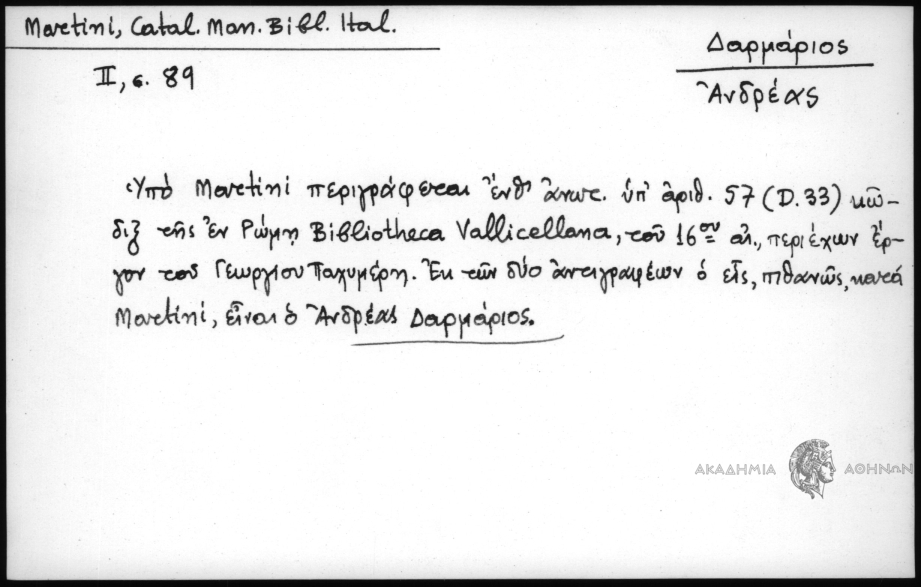 Martini, Catal. Man. Bibl. Ital.
II, σ. 89
Δαρμάριος
Ἀνδρέας
Ὑπὸ Martini περιγράφεται ἔνθ' ἀνωτ. ὑπ' ἀριθ. 57 (D. 33) κῶ-
διξ τῆς ἐν Ρώμῃ Bibliotheca Vallicellana, τοῦ 16ου αἰ., περιέχων ἔρ-
γον τοῦ Γεωργίου Παχυμέρη. Ἐκ τῶν δύο ἀντιγραφέων ὁ εἷς, πιθανῶς, κατὰ
Martini, εἶναι ὁ Ἀνδρέας Δαρμάριος.
ΑΚΑΔΗΜΙΑ ΑΘΗΝΩΝ